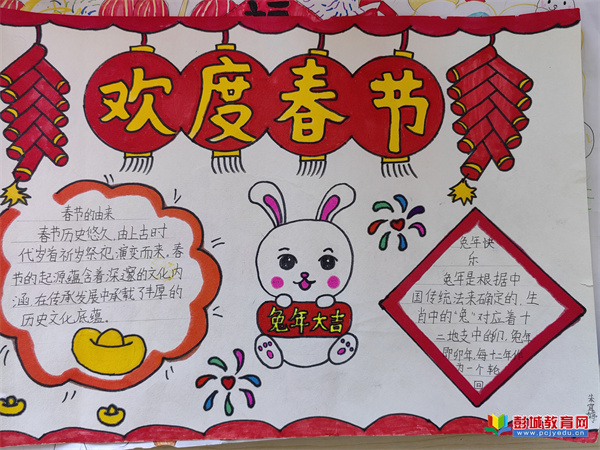 欢度春节
春节的由来
春节历史悠久,由上古时
代岁首祈岁祭祀演变而来。春
节的起源蕴含着深邃的文化内
涵,在传承发展中承载了丰厚的
历史文化底蕴。
兔年大吉
兔年快
乐
兔年是根据中
国传统法来确定的,生
肖中的“兔”对应着十
二地支中的卯,兔年
即卯年,每十二年
为一个轮
回
彭城教育网
www.pcjyedu.cn